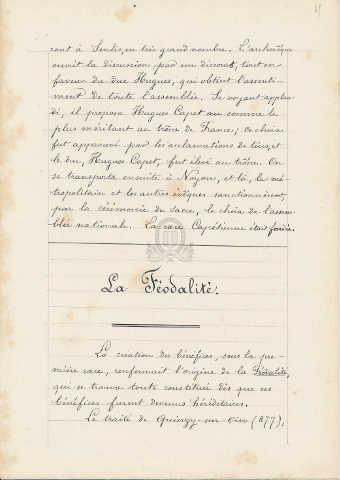 rent à Senlis, en très grand nombre. L'archevêque
ouvrit la discussion par un discours, tout en
faveur du duc Hugues, qui obtint l'assenti-
ment de toute l'assemblée. Se voyant applau-
di, il proposa Hugues Capet comme le
plus méritant au trône de France; ce choix
fut approuvé par les acclamations de tous, et
le duc, Hugues Capet, fut élevé au trône. On
se transporta ensuite à Noyon, et là, le mé-
tropolitain et les autres évêques sanctionnèrent,
par la cérémonie du sacre, le choix de l'assem-
blée nationale. La race Capétienne était fondée.
La Féodalité.
La création des bénéfices, sous la pre-
mière race, renfermait l'origine de la Féodalité,
qui se trouva toute constituée dès que ces
bénéfices furent devenus héréditaires.
Le traité de Quierzy-sur-Oise (877),